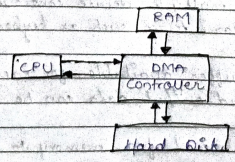 RAM
CPU
DMA
Controller
Hard Disk